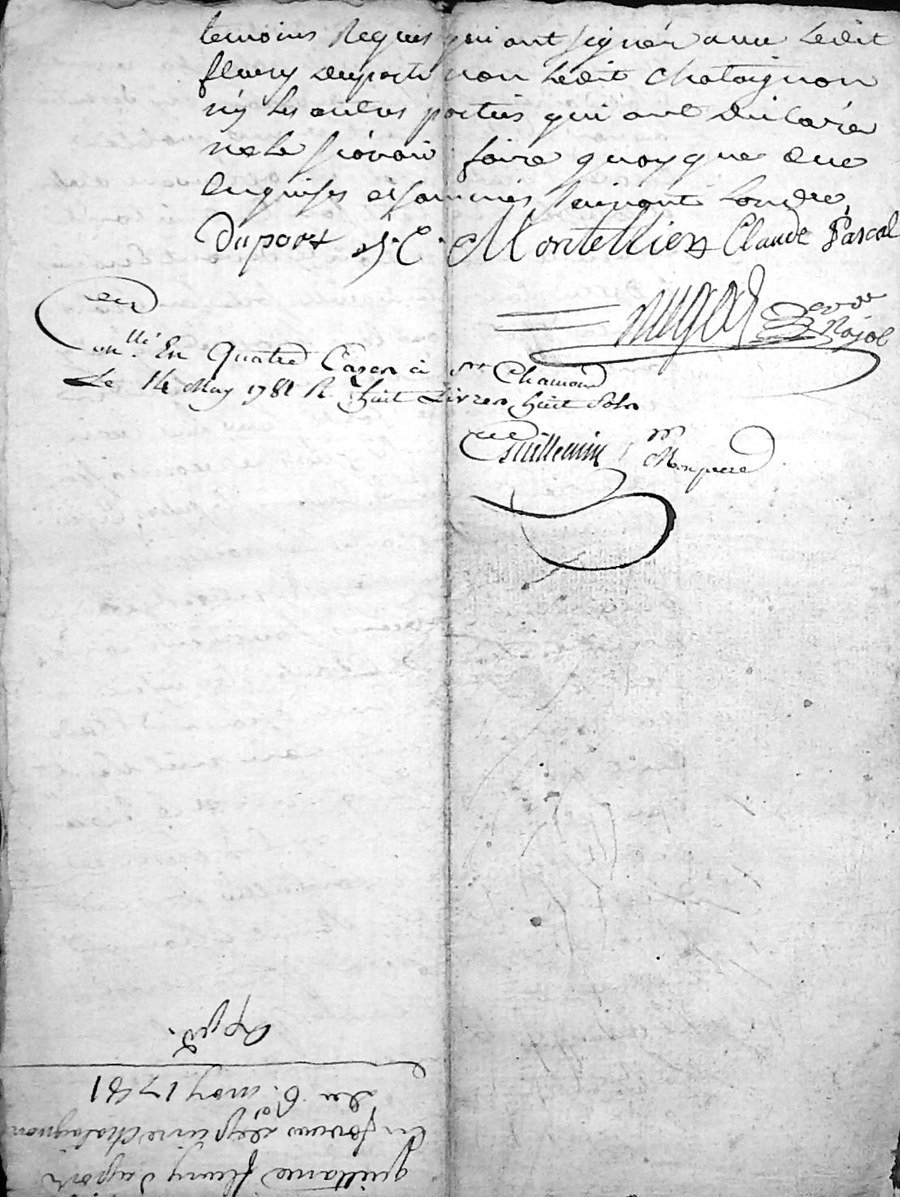 temoins Requis qui ont signés avec ledit
fleury duport non ledit chataignon
ny les autres parties qui ont déclarés
ne le sçavoir faire quoyque de ce
enquises et sommés
Duport J. C. Montellier Claude Pascal
Con.llé En Quatre Cases à St Chamond
Le 14 May 1781 R. huit Livres huit Sols
Guillemin
quittance fleury duport
en faveur de pierre chataignon
du 6. may 1781
Expéd.